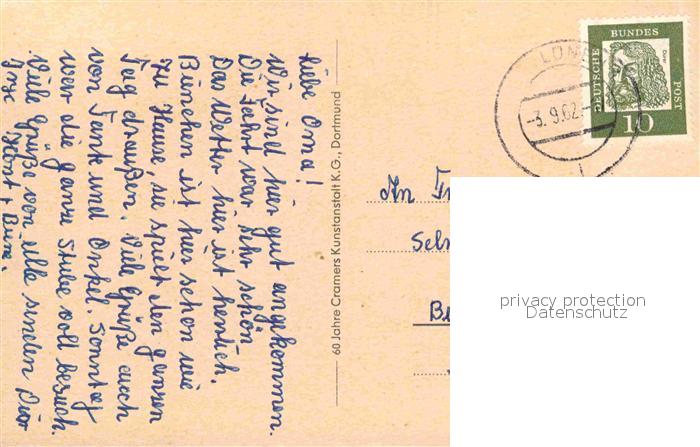 Liebe Oma!
Wir sind hier gut angekommen.
Die Fahrt war sehr schön
Das Wetter hier ist herrlich.
ist hier schon wie
zu Hause, sie spielt den ganzen
Tag draußen. Viele Grüße auch
von Tante und Onkel. Sonntag
war die ganze Stube voll besuch.
Viele Grüße von alle senden Dir
Horst +
60 Jahre Cramers Kunstanstalt K.G., Dortmund
An
DEUTSCHE BUNDES POST
Dürer
10
-3.9.62
privacy protection
Datenschutz